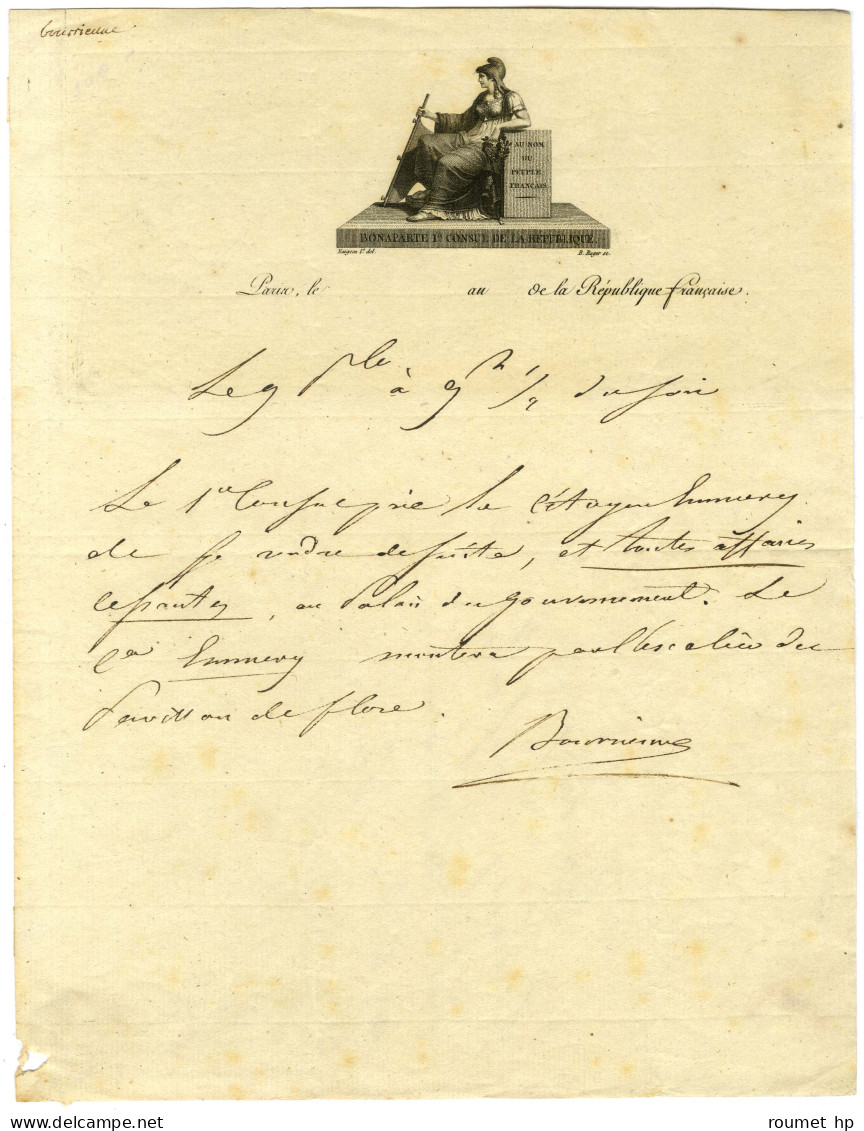 Bourrienne
AU NOM
DU
PEUPLE
FRANÇAIS.
BONAPARTE 1er CONSUL DE LA REPUBLIQUE.
Naigeon Jne del.
B. Roger sc.
Paris, le au de la République française.
Le 9 à 9h 1/2 du soir
Le 1er Consul prie le Citoyen Emmery
de se rendre de suite, et toutes affaires
cessantes, au Palais du gouvernement. Le
Cen Emmery montera par l'escalier du
Pavillon de flore.
Bourrienne
roumet hp